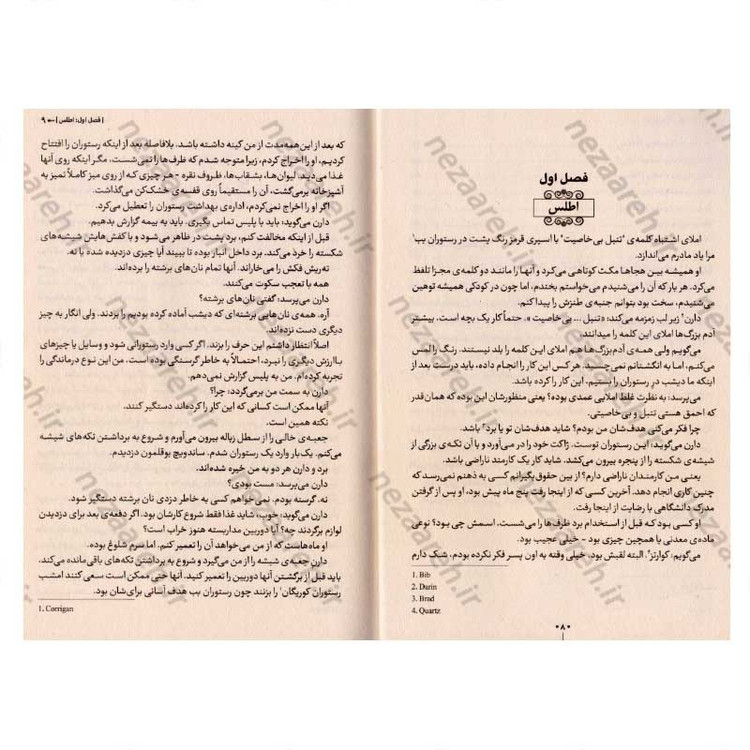 فصل اول
اطلس
املای اشتباه کلمه‌ی "تنبل بی‌خاصیت" با اسپری قرمز رنگ پشت در رستوران بب¹
مرا یاد مادرم می‌اندازد.
او همیشه بین هجاها مکث کوتاهی می‌کرد و آنها را مانند دو کلمه‌ی مجزا تلفظ
می‌کرد. هر بار که آن را می‌شنیدم می‌خواستم بخندم، اما چون در کودکی همیشه توهین
می‌شنیدم، سخت بود بتوانم جنبه‌ی طنزش را پیدا کنم.
دارن² زیر لب زمزمه می‌کند: «تنبل ... بی‌خاصیت». حتماً کار یک بچه است. بیشتر
آدم بزرگ‌ها املای این کلمه را میدانند.
می‌گویم ولی همه‌ی آدم‌بزرگ‌ها هم املای این کلمه را بلد نیستند. رنگ را لمس
می‌کنم، اما به انگشتانم نمی‌چسبد. هر کس این کار را انجام داده، باید درست بعد از
اینکه ما دیشب در رستوران را بستیم، این کار را کرده باشد.
می‌پرسد: به نظرت غلط املایی عمدی بوده؟ یعنی منظورشان این بوده که همان‌قدر
که احمق هستی تنبل و بی‌خاصیتی.
چرا فکر می‌کنی هدف‌شان من بودم؟ شاید هدف‌شان تو یا برد³ باشد.
دارن می‌گوید: این رستوران توست. ژاکت خود را در می‌آورد و با آن تکه‌ی بزرگی از
شیشه‌ی شکسته را از پنجره بیرون می‌کشد. شاید کار یک کارمند ناراضی باشد.
یعنی من کارمندان ناراضی دارم؟ از بین حقوق‌بگیرانم کسی به ذهنم نمی‌رسد که
چنین کاری انجام دهد. آخرین کسی که از اینجا رفت پنج ماه پیش بود، او پس از گرفتن
مدرک دانشگاهی با رضایت از اینجا رفت.
او کسی بود که قبل از استخدام برد ظرف‌ها را می‌شست. اسمش چی بود؟ نوعی
ماده‌ی معدنی یا همچین چیزی بود - خیلی عجیب بود.
می‌گویم، کوارتز⁴. البته لقبش بود. خیلی وقته به اون پسر فکر نکرده بودم. شک دارم
1. Bib
2. Darin
3. Brad
4. Quartz
۸۰
| فصل اول: اطلس | ۹
که بعد از این‌همه‌مدت از من کینه داشته باشد. بلافاصله بعد از اینکه رستوران را افتتاح
کردیم، او را اخراج کردم، زیرا متوجه شدم که ظرف‌ها را نمی‌شست، مگر اینکه روی آنها
غذا می‌دید. لیوان‌ها، بشقاب‌ها، ظروف نقره - هر چیزی که از روی میز کاملاً تمیز به
آشپزخانه برمی‌گشت، آن را مستقیماً روی قفسه‌ی خشک‌کن می‌گذاشت.
اگر او را اخراج نمی‌کردم، اداره‌ی بهداشت رستوران را تعطیل می‌کرد.
دارن می‌گوید: باید با پلیس تماس بگیری. باید به بیمه گزارش بدهیم.
قبل از اینکه مخالفت کنم، برد پشت در ظاهر می‌شود و با کفش‌هایش شیشه‌های
شکسته را خرد می‌کند. برد داخل انبار بوده تا ببیند آیا چیزی دزدیده شده یا نه.
ته‌ریش فکش را می‌خاراند. آنها تمام نان‌های برشته را برده‌اند.
همه با تعجب سکوت می‌کنند.
دارن می‌پرسد: گفتی نان‌های برشته؟
آره. همه‌ی نان‌هایی برشته‌ای که دیشب آماده کرده بودیم را بردند. ولی انگار به چیز
دیگری دست نزده‌اند.
اصلاً انتظار نداشتم این حرف را بزند. اگر کسی وارد رستورانی شود و وسایل یا چیزهای
باارزش دیگری را نبرد، احتمالاً به خاطر گرسنگی بوده است. من این نوع درماندگی را
تجربه کرده‌ام. من به پلیس گزارش نمی‌دهم.
دارن به سمت من برمی‌گردد: چرا؟
آنها ممکن است کسانی که این کار را کرده‌اند دستگیر کنند.
نکته همین است.
جعبه‌ی خالی را از سطل زباله بیرون می‌آورم و شروع به برداشتن تکه‌های شیشه
می‌کنم. یک‌بار وارد یک رستوران شدم. ساندویچ بوقلمون دزدیدم.
برد و دارن هر دو به من خیره شده‌اند.
دارن می‌پرسد: مست بودی؟
نه. گرسنه بودم. نمی‌خواهم کسی به خاطر دزدی نان برشته دستگیر شود.
دارن می‌گوید: خوب، شاید غذا فقط شروع کارشان بود. اگر دفعه‌ی بعد برای دزدیدن
لوازم برگردند چه؟ آیا دوربین مداربسته هنوز خراب است؟
او ماه‌هاست که از من می‌خواهد آن را تعمیر کنم. اما سرم شلوغ بوده.
دارن جعبه‌ی شیشه را از من می‌گیرد و شروع به برداشتن تکه‌های باقی‌مانده می‌کند.
باید قبل از برگشتن آنها دوربین را تعمیر کنید. آنها حتی ممکن است سعی کنند امشب
رستوران کوریگان¹ را بزنند چون رستوران بب هدف آسانی برای‌شان بود.
1. Corrigan
nezaareh.ir